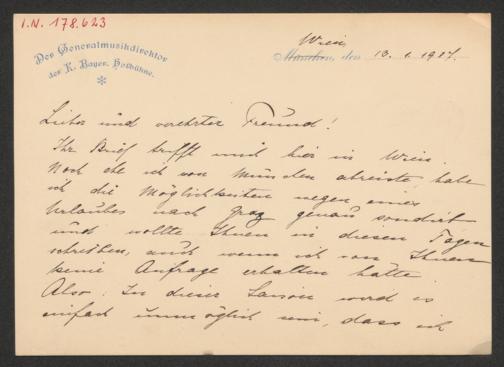 I.N. 178.623
Der Generalmusikdirektor
der K. Bayer. Hofbühne.
Wien
München, den 13. 1. 1917.
Lieber und verehrter Freund!
Ihr Brief trifft mich hier in Wien.
Noch ehe ich von München abreiste habe
ich die Möglichkeiten wegen eines
Urlaubes nach Graz genau sondirt
und wollte Ihnen in diesen Tagen
schreiben, auch wenn ich von Ihnen
keine Anfrage erhalten hätte
Also: In dieser Saison wird es
einfach unmöglich sein, dass ich